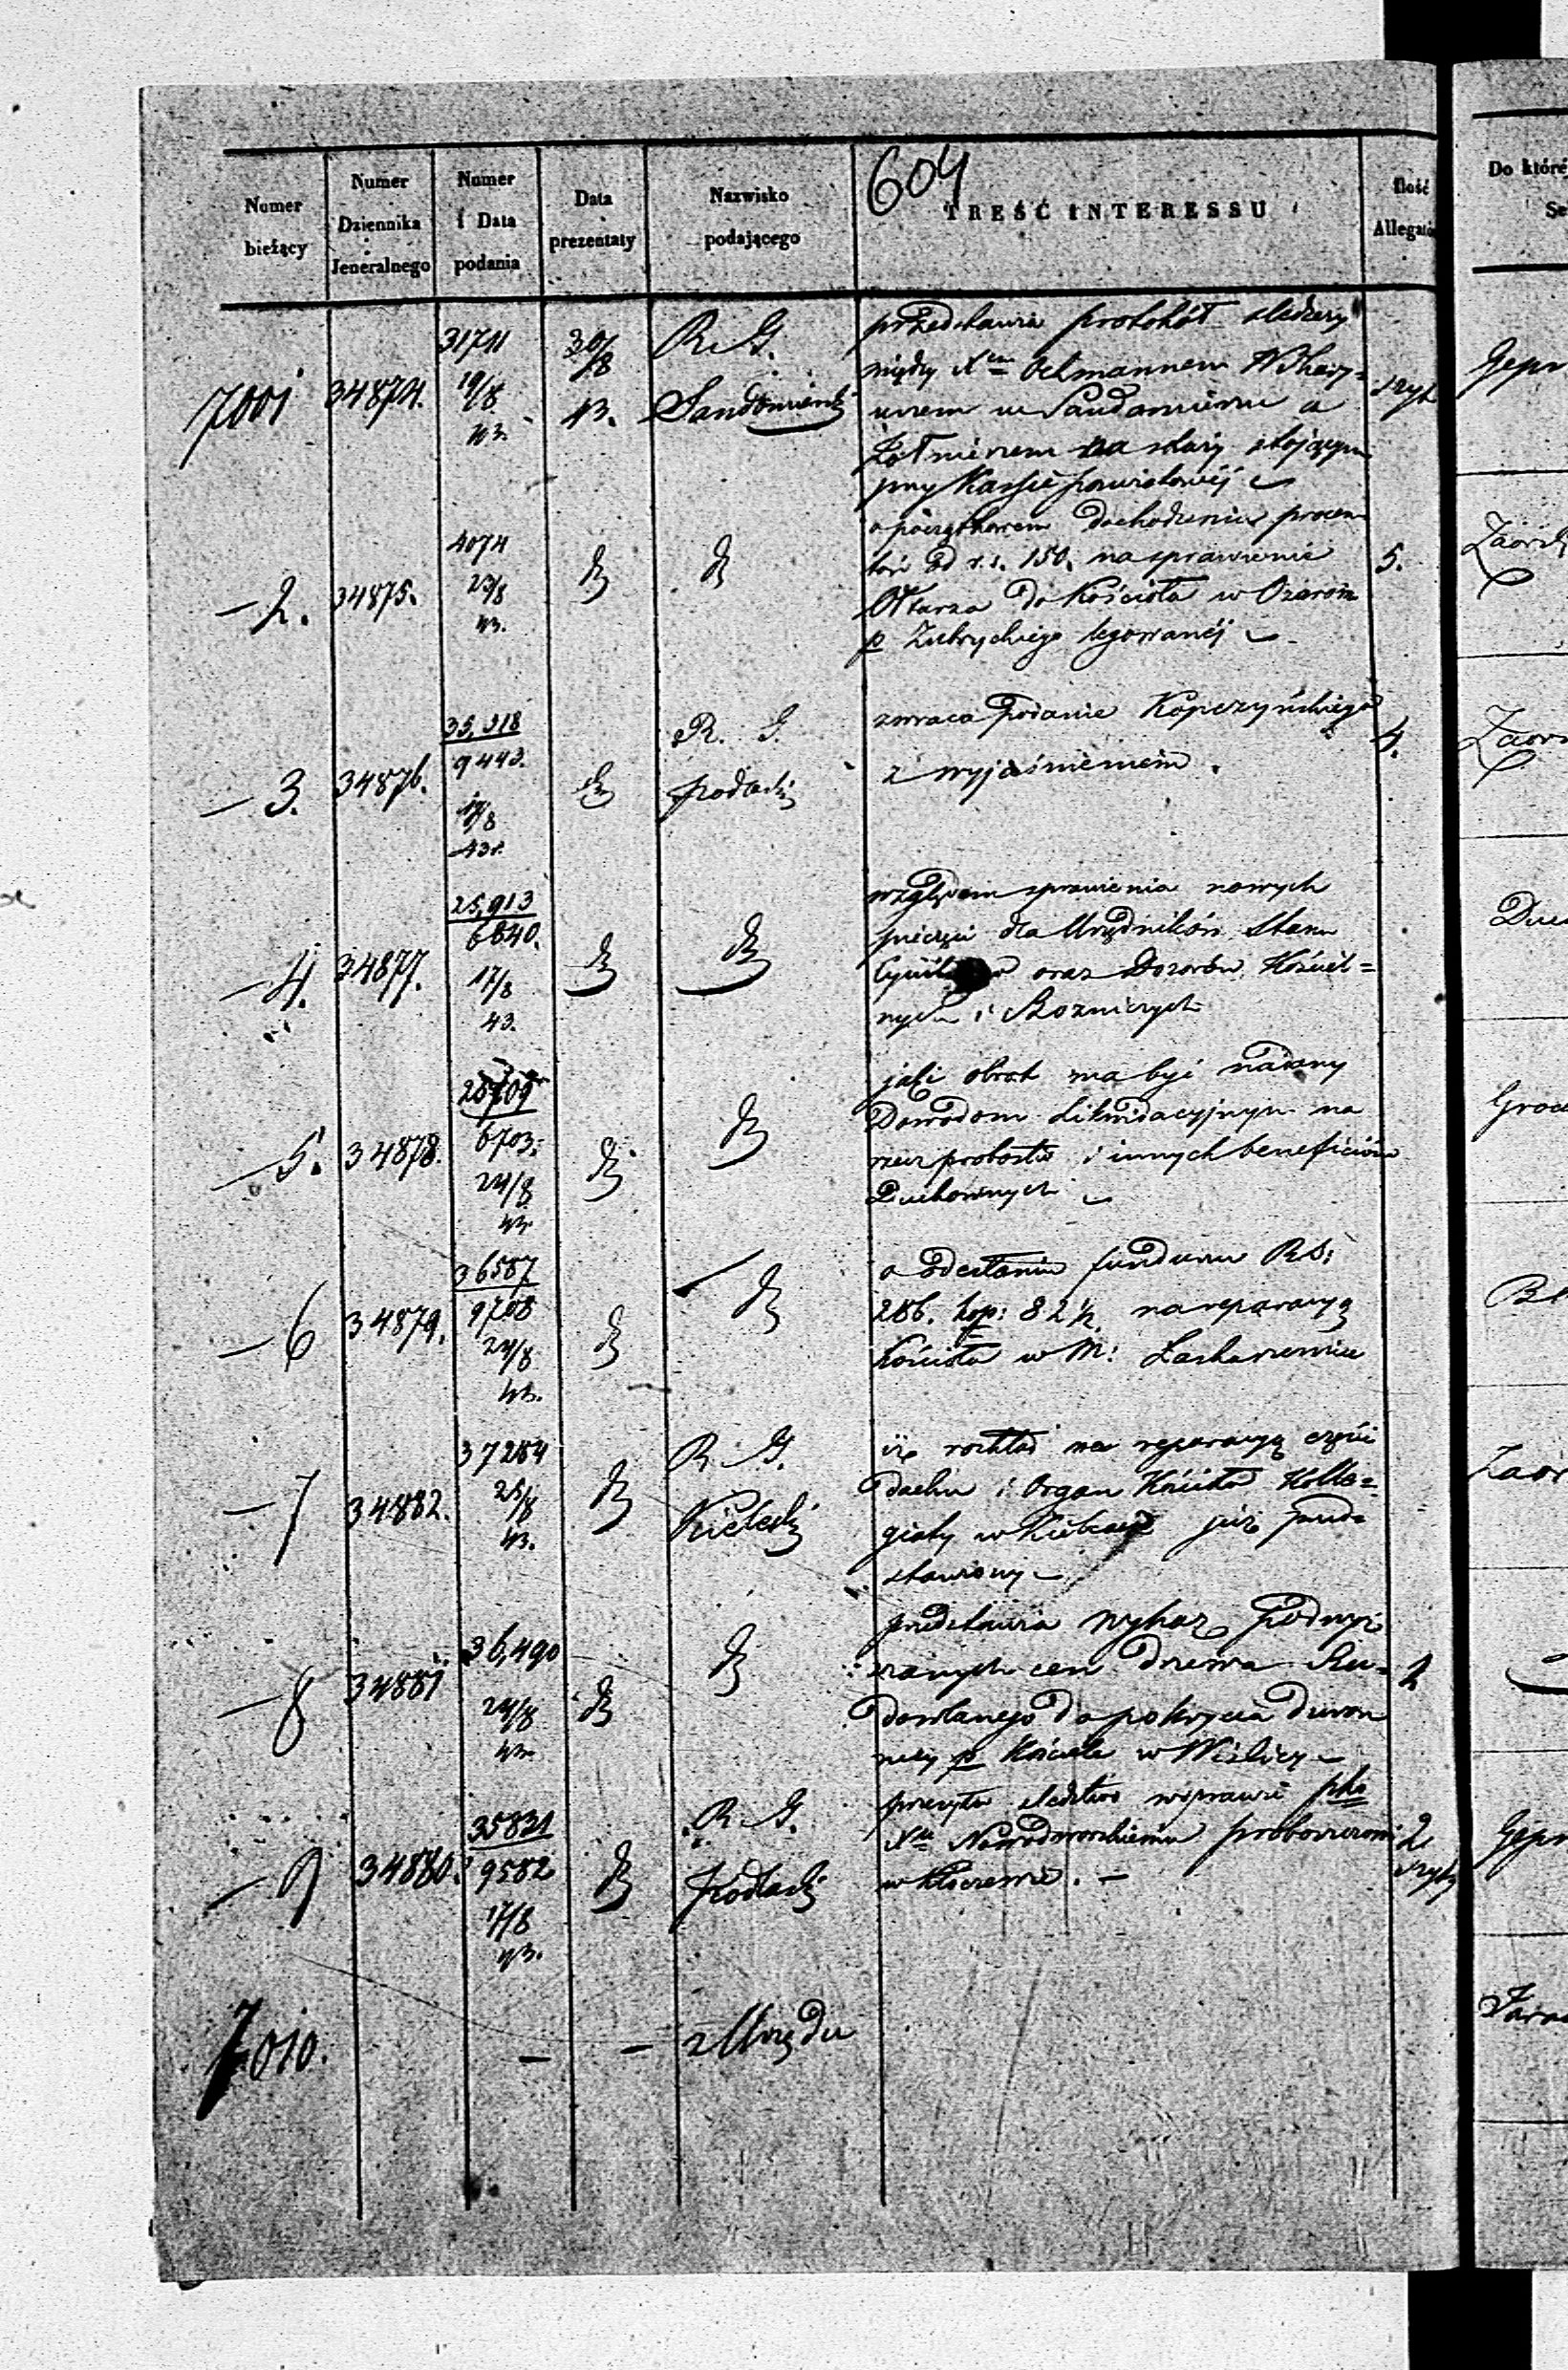 604
Numer bieżący
Numer Dziennika Jeneralnego
Numer i Data podania
Data prezentaty
Nazwisko podającego
TREŚĆ INTERESSU
Ilość
Do które
7001 34874. 31711 19/8 43. 30/8 43. R. G. Sandomierski
przedstawia protokół
między Xem
w Sandomierzu a
Żołnierzem na stojącym
przy Kassie powiatowéj
-2. 34875. 4074 23/8 43.
dochodzenia procen
tów od r.s. 150. na sprawienie
Ołtarza do Kościoła w
p Zubryckiego legowanéj
5.
-3. 34876. 9443. 43 R. G. Podlaski
zwraca podanie Kopczyńskiego
z wyjaśnieniem.
4.
-4. 34877. 25,913 6840. 17/8 43.
względem sprawienia nowych
pieczęci dla Urzędników Stanu
oraz Dozorów Kościel=
nych i Bożniczych
-5. 34878. 6703. 24/8 43.
jaki obrót ma być nadany
Dowodom Likwidacyjnym na
rzecz probostw i innych beneficiów
Duchownych
-6 34879. 36587 9708 24/8 43.
o odesłaniu funduszu RS:
286. kop: 82½ na reparacyą
Kościoła w M:
-7 34882. 37284 25/8 43. R. G. Kielecki
iż rozkład na reparacyą części
dachu i Organ Kościoła Kolle=
giaty w Kielcach już przed=
stawiony
-8 34881 36,490 24/8 43.
przedstawia wykaz podwyż
szonych cen drzewa Bu=
dowlanego do pokrycia dzwon
nicy p Kościele w Wiślicy
-9 34880. 35831 9582 17/8 43. R. G. Podlaski
przesyła śledztwo w sprawie pko
Xu Nowodworskiemu proboszczowi
w Kłoczewie. -
2
7010. - - z Urzędu